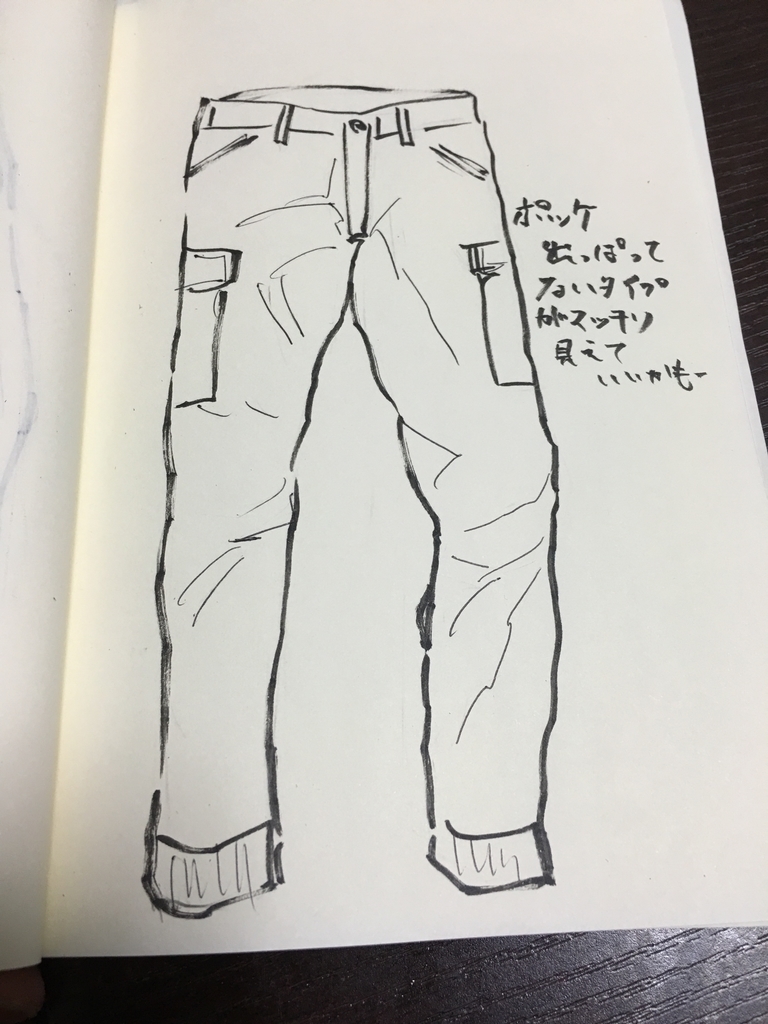 ポッケ
出っぱって
ないタイプ
がスッキリ
見えて
いいかもー